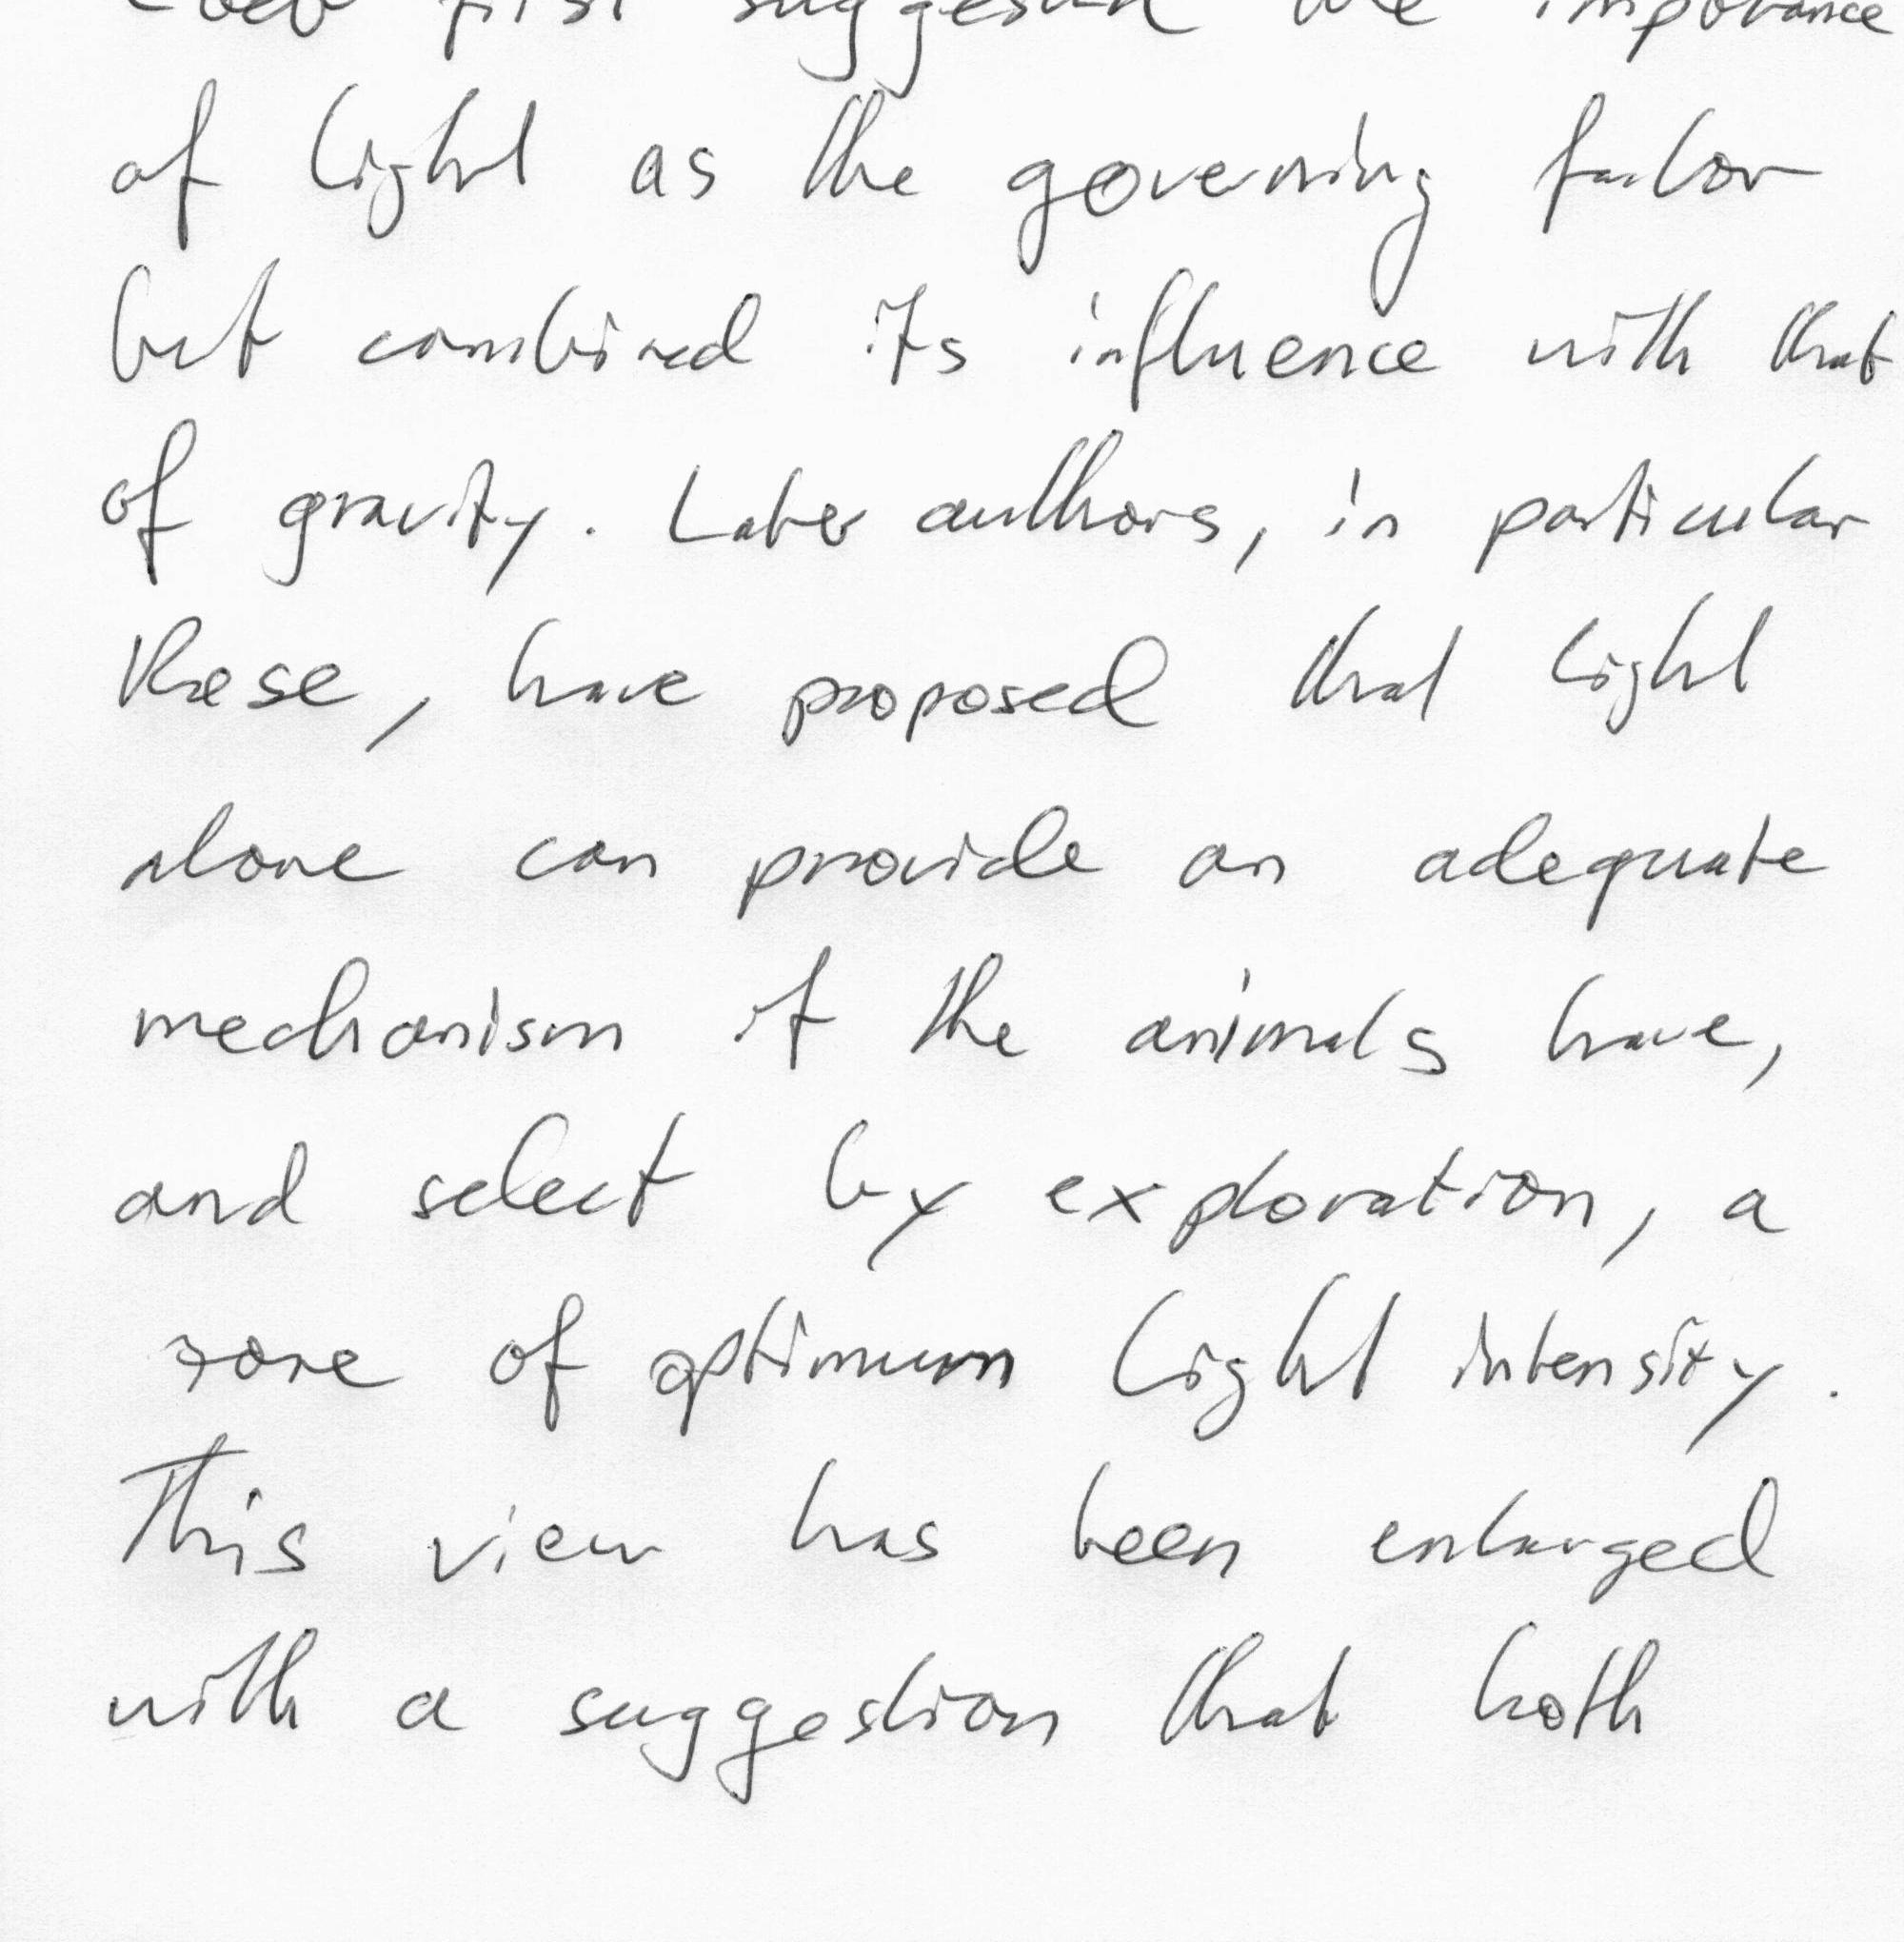 Loeb first suggested the importance
of light as the governing factor
but combined its influence with that
of gravity. Later authors, in particular
these, have proposed that light
alone can provide an adequate
mechanism if the animals have,
and select by exploration, a
zone of optimum light intensity.
This view has been enlarged
with a suggestion that both